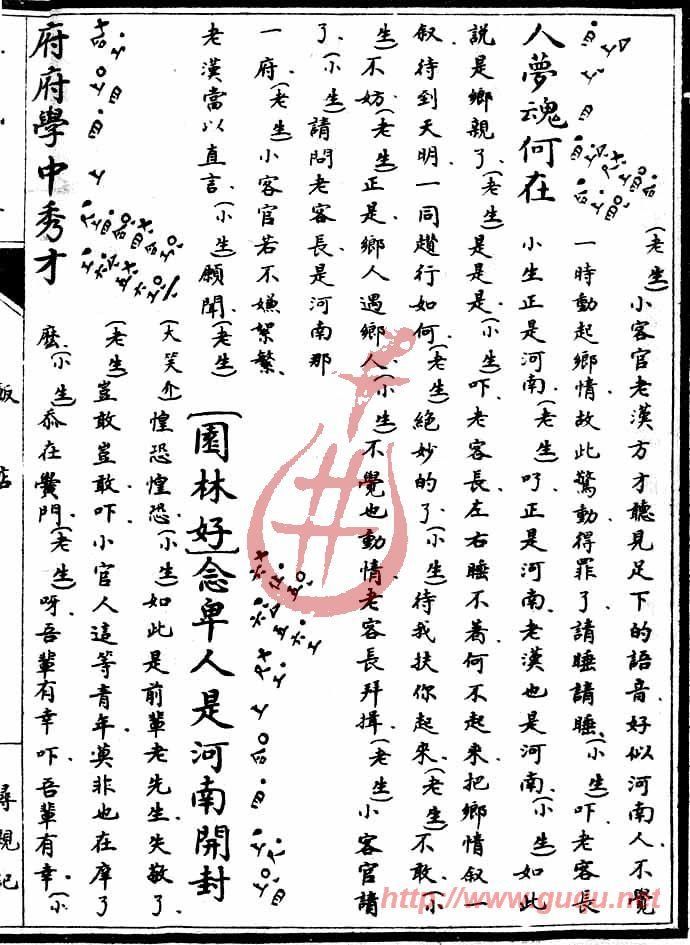 人夢魂何在
(老生)小客官老漢方才聽見足下的語音好似河南人、不覺
一時動起鄉情故此驚動得罪了請睡請睡、(小生)吓、老客長
小生正是河南、(老生)吖正是河南、老漢也是河南、(小生)如此
說是鄉親了、(老生)是是是、(小生)吓、老客長左右睡不着何不起來把鄉情叙一
叙、待到天明、一同趲行如何、(老生)絕妙的了、(小生)待我扶你起來、(老生)不敢、(小
生)不妨、(老生)正是、鄉人遇鄉人、(小生)不覺也動情、老客長拜揖、(老生)小客官請
了、(小生)請問老客長是河南那
一府、(老生)小客官若不嫌絮繁、
老漢當以直言、(小生)願聞、(老生)
[園林好]念卑人是河南開封
府府學中秀才
(大笑介)惶恐惶恐、(小生)如此是前輩老先生、失敬了、
(老生)豈敢豈敢吓、小官人這等青年、莫非也在庠了
麽、(小生)忝在黌門、(老生)呀、吾輩有幸吓、吾輩有幸、(小
飯店
尋親記
http://www.guqu.net